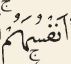 اَنْفُسُهُمْ